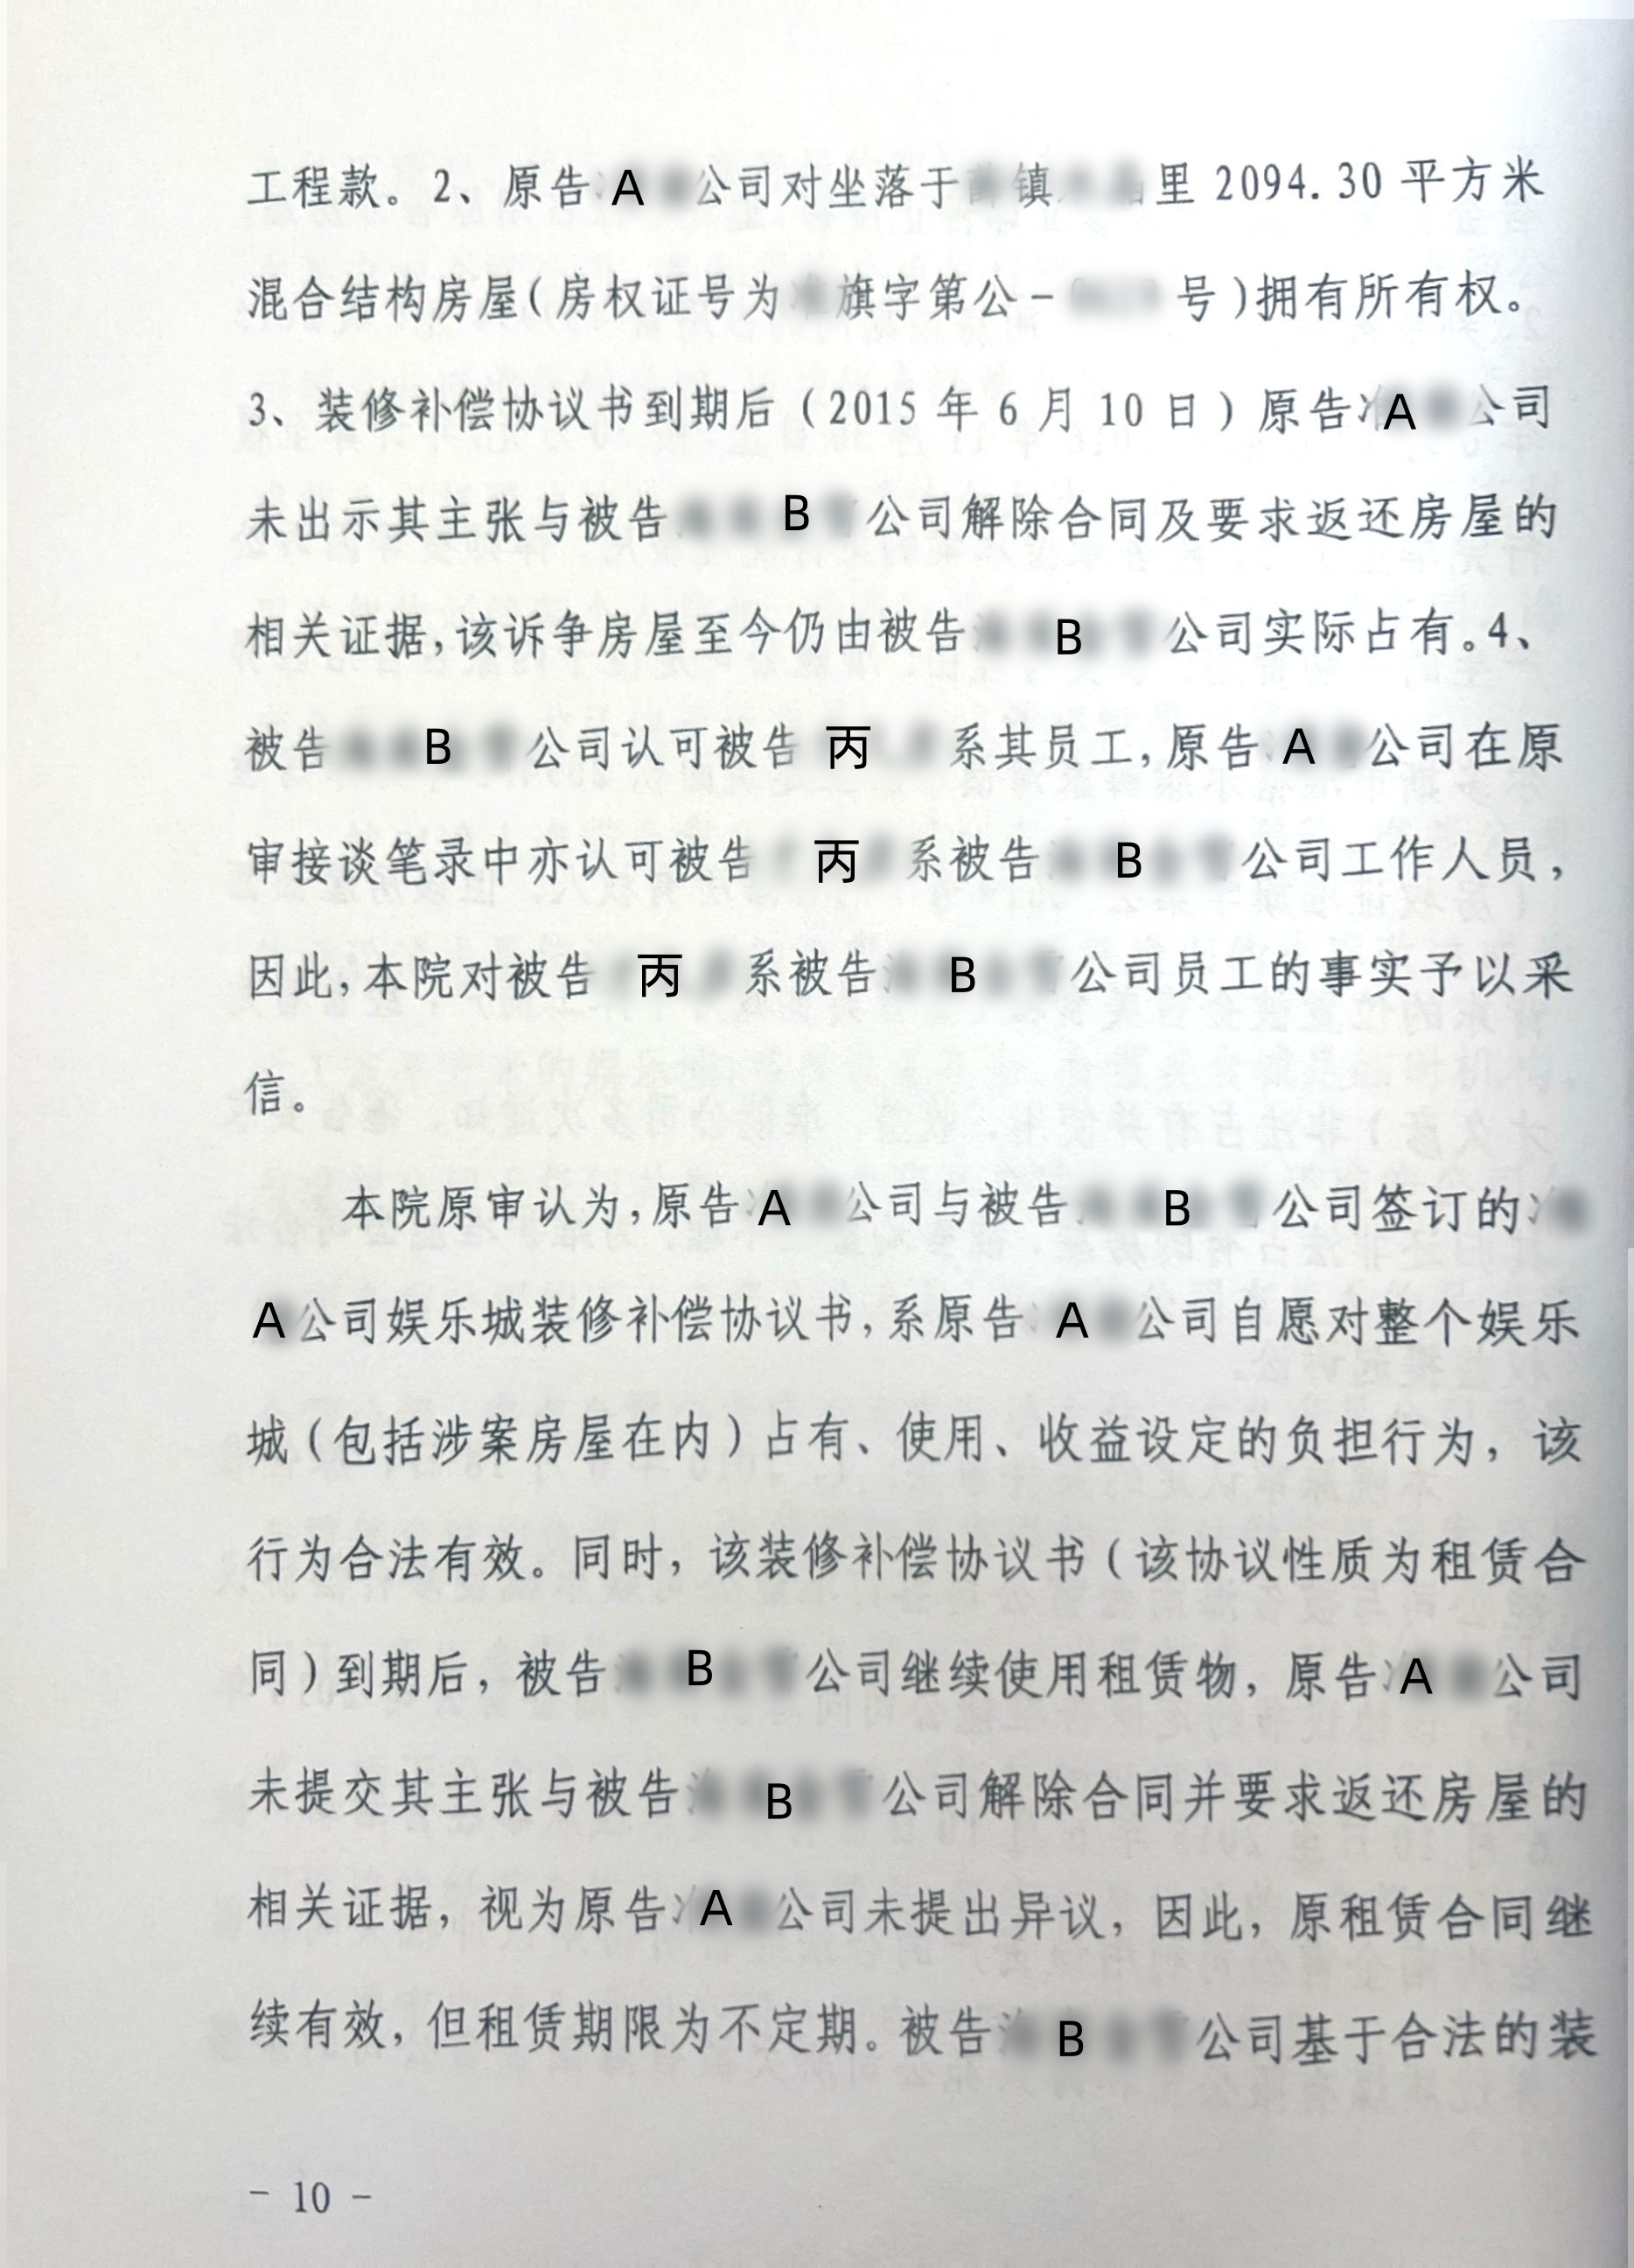 工程款。2、原告A公司对坐落于镇里 2094.30 平方米
混合结构房屋(房权证号为旗字第公-号)拥有所有权。
3、装修补偿协议书到期后(2015 年 6 月 10 日)原告A公司
未出示其主张与被告B公司解除合同及要求返还房屋的
相关证据,该诉争房屋至今仍由被告B公司实际占有。4、
被告B公司认可被告丙系其员工,原告A公司在原
审接谈笔录中亦认可被告丙系被告B公司工作人员,
因此,本院对被告丙系被告B公司员工的事实予以采
信。
本院原审认为,原告A公司与被告B公司签订的
A公司娱乐城装修补偿协议书,系原告A公司自愿对整个娱乐
城(包括涉案房屋在内)占有、使用、收益设定的负担行为,该
行为合法有效。同时,该装修补偿协议书(该协议性质为租赁合
同)到期后,被告B公司继续使用租赁物,原告A公司
未提交其主张与被告B公司解除合同并要求返还房屋的
相关证据,视为原告A公司未提出异议,因此,原租赁合同继
续有效,但租赁期限为不定期。被告B公司基于合法的装
- 10 -